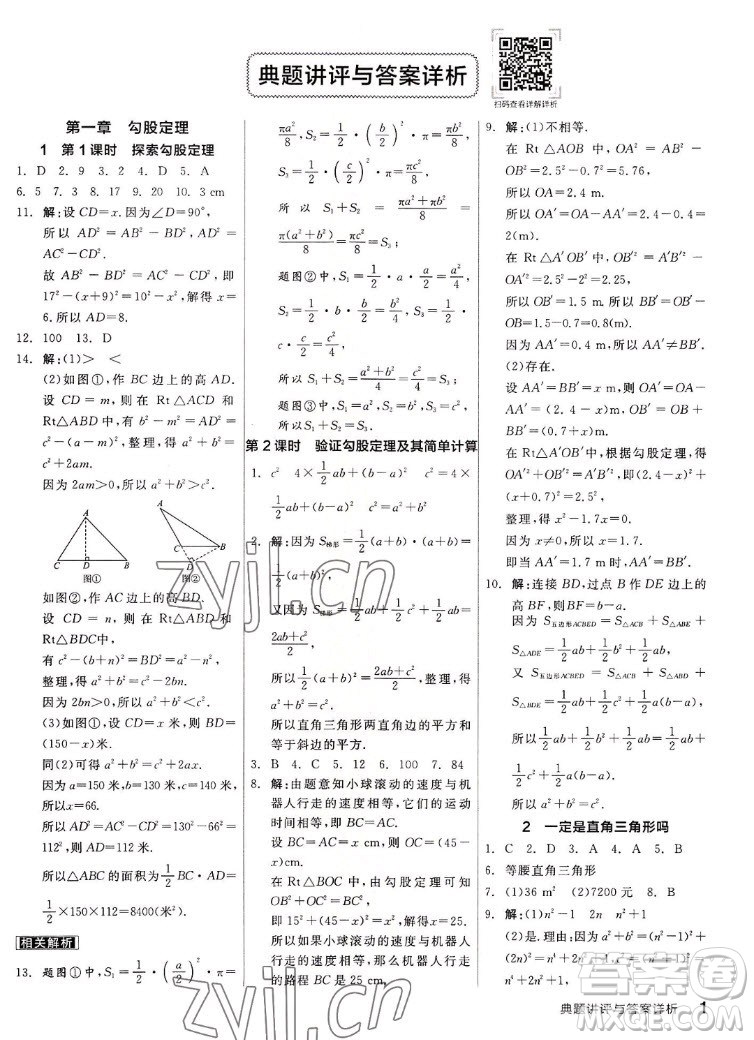 典题讲评与答案详析
扫码查看详解详析
第一章 勾股定理
1 第1课时 探索勾股定理
1. D 2. 9 3. 2 4. D 5. A
6. 5 7. 3 8. 17 9. 20 10. 3 cm
11. 解:设 CD=x.因为∠D=90°,
所以 AD²=AB²-BD², AD²=
AC²-CD².
故 AB²-BD²=AC²-CD²,即
17²-(x+9)²=10²-x²,解得 x=
6.所以 AD=8.
12. 100 13. D
14. 解:(1)> <
(2)如图①,作 BC 边上的高 AD.
设 CD=m,则在 Rt△ACD 和
Rt△ABD 中,有 b²-m²=
c²-(a-m)²,整理,得 a²+b²=
c²+2am.
因为 2am>0,所以 a²+b²>c².
A
B D C
图①
A
C B
D
图②
如图②,作 AC 边上的高 BD.
设 CD=n,则在 Rt△ABD 和
Rt△BDC中,
有 c²-(b+n)²=a²-n².
整理,得 a²+b²=c²-2bn.
因为 2bn>0,所以 a²+b²<c².
(3)如图①,设 CD=x 米,则 BD=
(150-x)米.
同(2)可得 b²-x²=c²-(a-x)².
因为 a=150米,b=130米,c=140米,
所以 x=66.
所以 AD²=AC²-CD²=130²-66²=
112²,所以 AD=112米.
所以△ABC 的面积为½BC·AD=
½×150×112=8400(米²).
相关解析
13. 题图①中,S₁=½·(a/2)²·π=
πa²/8,S₂=½·(b/2)²·π=πb²/8,
S₃=½·(c/2)²·π=πc²/8.
所以 S₁+S₂=πa²/8+πb²/8=
π(a²+b²)/8=πc²/8=S₃.
题图②中,S₁=½·a·a/2=a²/4,
S₂=½·b·b/2=b²/4,S₃=½·
c·c/2=c²/4,
所以 S₁+S₂=(a²+b²)/4=c²/4=S₃.
题图③中,S₁=a²,S₂=b²,S₃=c²,
所以 S₁+S₂=S₃.
第2课时 验证勾股定理及其简单计算
1. c² 4×½ab+(b-a)² c²=4×
½ab+(b-a)² c²=a²+b²
2. 解:因为 S梯形=½(a+b)·(a+b)=
又因为 S梯形=½ab+½ab+½c²=
(2ab+c²)/2,
所以(a²+2ab+b²)/2=(2ab+c²)/2,整理,
得 a²+b²=c².
所以直角三角形两直角边的平方和
等于斜边的平方.
3. B 4. C 5. 12 6. 100 7. 84
8. 解:由题意知小球滚动的速度与机
器人行走的速度相等,它们的运动
时间相等,即 BC=AC.
设 BC=AC=x cm,则 OC=(45-
x)cm.
在 Rt△BOC 中,由勾股定理可知
OB²+OC²=BC²,
即 15²+(45-x)²=x²,解得 x=25.
所以如果小球滚动的速度与机器人
行走的速度相等,那么机器人行走
的路程 BC 是 25 cm.
9. 解:(1)不相等.
在 Rt△AOB 中,因为 OA²=AB²-
OB²=2.5²-0.7²=5.76,
所以 OA=2.4 m.
所以 OA′=OA-AA′=2.4-0.4=
2(m).
在 Rt△A′OB′中,因为 OB′²=
A′B′²-OA′²=2.5²-2²=2.25,
所以 OB′=1.5 m.所以 BB′=OB′-
OB=1.5-0.7=0.8(m).
因为 AA′=0.4 m,所以 AA′≠BB′.
(2)存在.
设 AA′=BB′=x m,则 OA′=OA-
AA′=(2.4-x)m,OB′=OB+
BB′=(0.7+x)m.
在 Rt△A′OB′中,根据勾股定理,得
OA′²+OB′²=A′B′²,即(2.4-x)²
+(0.7+x)²=2.5².
整理,得 x²-1.7x=0.
因为 x≠0,所以 x=1.7.
即当 AA′=1.7 m 时,AA′=BB′.
10. 解:连接 BD,过点 B 作 DE 边上的
高 BF,则 BF=b-a.
因为 S五边形ACBED=S△ACB+S△ABE+
S△ADE=½ab+½b²+½ab,
又 S五边形ACBED=S△ACB+S△ABD+
S△BDE=½ab+½c²+½a(b-a),
所以½ab+½b²+½ab=½ab+
½c²+½a(b-a),
所以 a²+b²=c².
2 一定是直角三角形吗
1. C 2. D 3. A 4. A 5. B
6. 等腰直角三角形
7. (1)36 m² (2)7200元 8. B
9. 解:(1)n²-1 2n n²+1
(2)是.理由:因为 a²+b²=(n²-1)²+
n⁴+2n²+1,
zyjl.cn
答案圈
MXQE.COM
典题讲评与答案详析 1